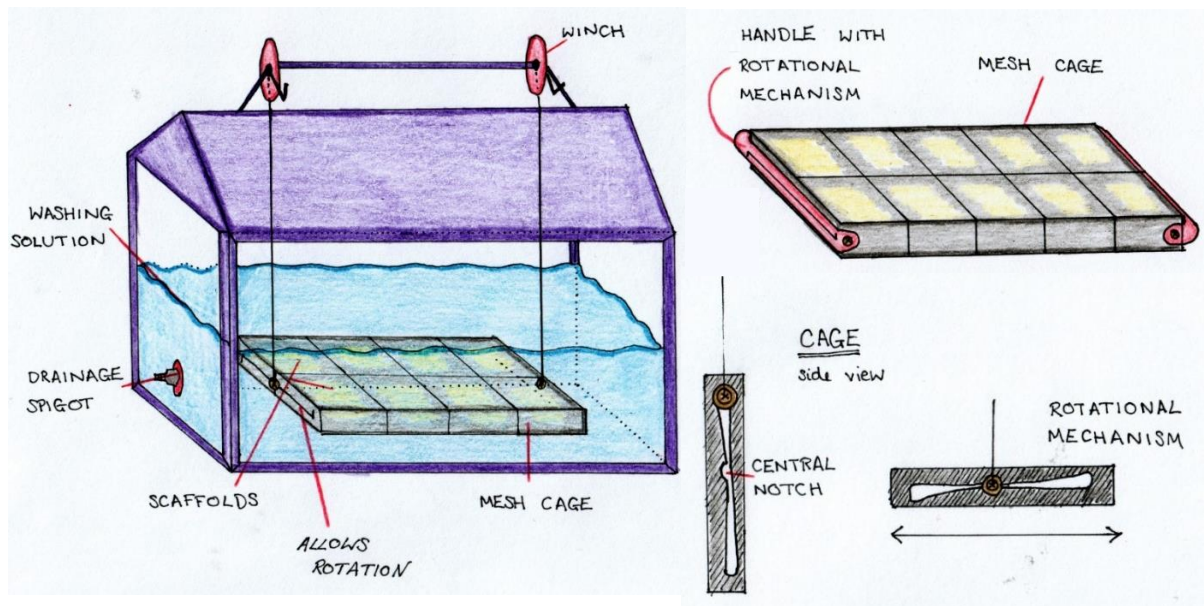 WINCH
WASHING
SOLUTION
DRAINAGE
SPIGOT
SCAFFOLDS
ALLOWS
ROTATION
MESH CAGE
HANDLE WITH
ROTATIONAL
MECHANISM
MESH CAGE
CAGE
side view
CENTRAL
NOTCH
ROTATIONAL
MECHANISM